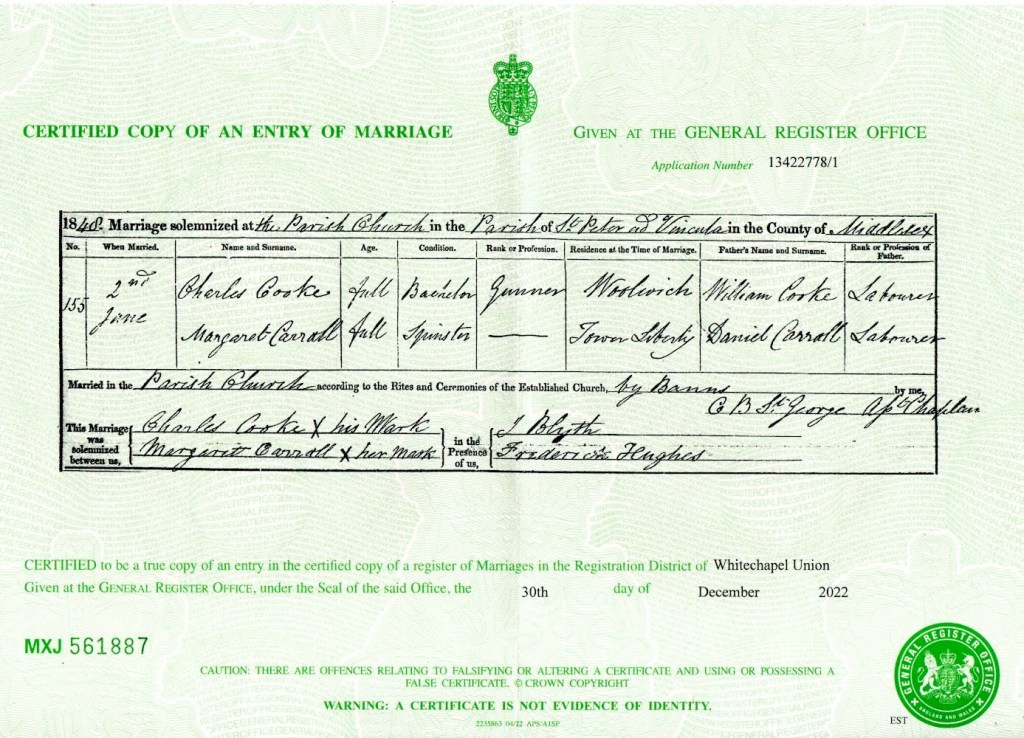 CERTIFIED COPY OF AN ENTRY OF MARRIAGE
GIVEN AT THE GENERAL REGISTER OFFICE
Application Number 13422778/1
1840. Marriage solemnized at the Parish Church in the Parish of St. Peter ad Vincula in the County of Middlesex
No. When Married. Name and Surname. Age. Condition. Rank or Profession. Residence at the Time of Marriage. Father's Name and Surname. Rank or Profession of Father.
155 2nd June Charles Cooke full Bachelor Gunner Woolwich William Cooke Labourer
Margaret Carroll full Spinster — Tower Liberty Daniel Carroll Labourer
Married in the Parish Church according to the Rites and Ceremonies of the Established Church, by Banns by me,
C B St. George Apt Chaplain
This Marriage was solemnized between us, Charles Cooke X his Mark
Margarett Carroll X her Mark
in the Presence of us, J Blyth
Frederick Hughes
CERTIFIED to be a true copy of an entry in the certified copy of a register of Marriages in the Registration District of Whitechapel Union
Given at the GENERAL REGISTER OFFICE, under the Seal of the said Office, the 30th day of December 2022
MXJ 561887
CAUTION: THERE ARE OFFENCES RELATING TO FALSIFYING OR ALTERING A CERTIFICATE AND USING OR POSSESSING A
FALSE CERTIFICATE. © CROWN COPYRIGHT
WARNING: A CERTIFICATE IS NOT EVIDENCE OF IDENTITY.
2235863 04/22 APS/A1SP
EST
GENERAL REGISTER OFFICE
ENGLAND AND WALES